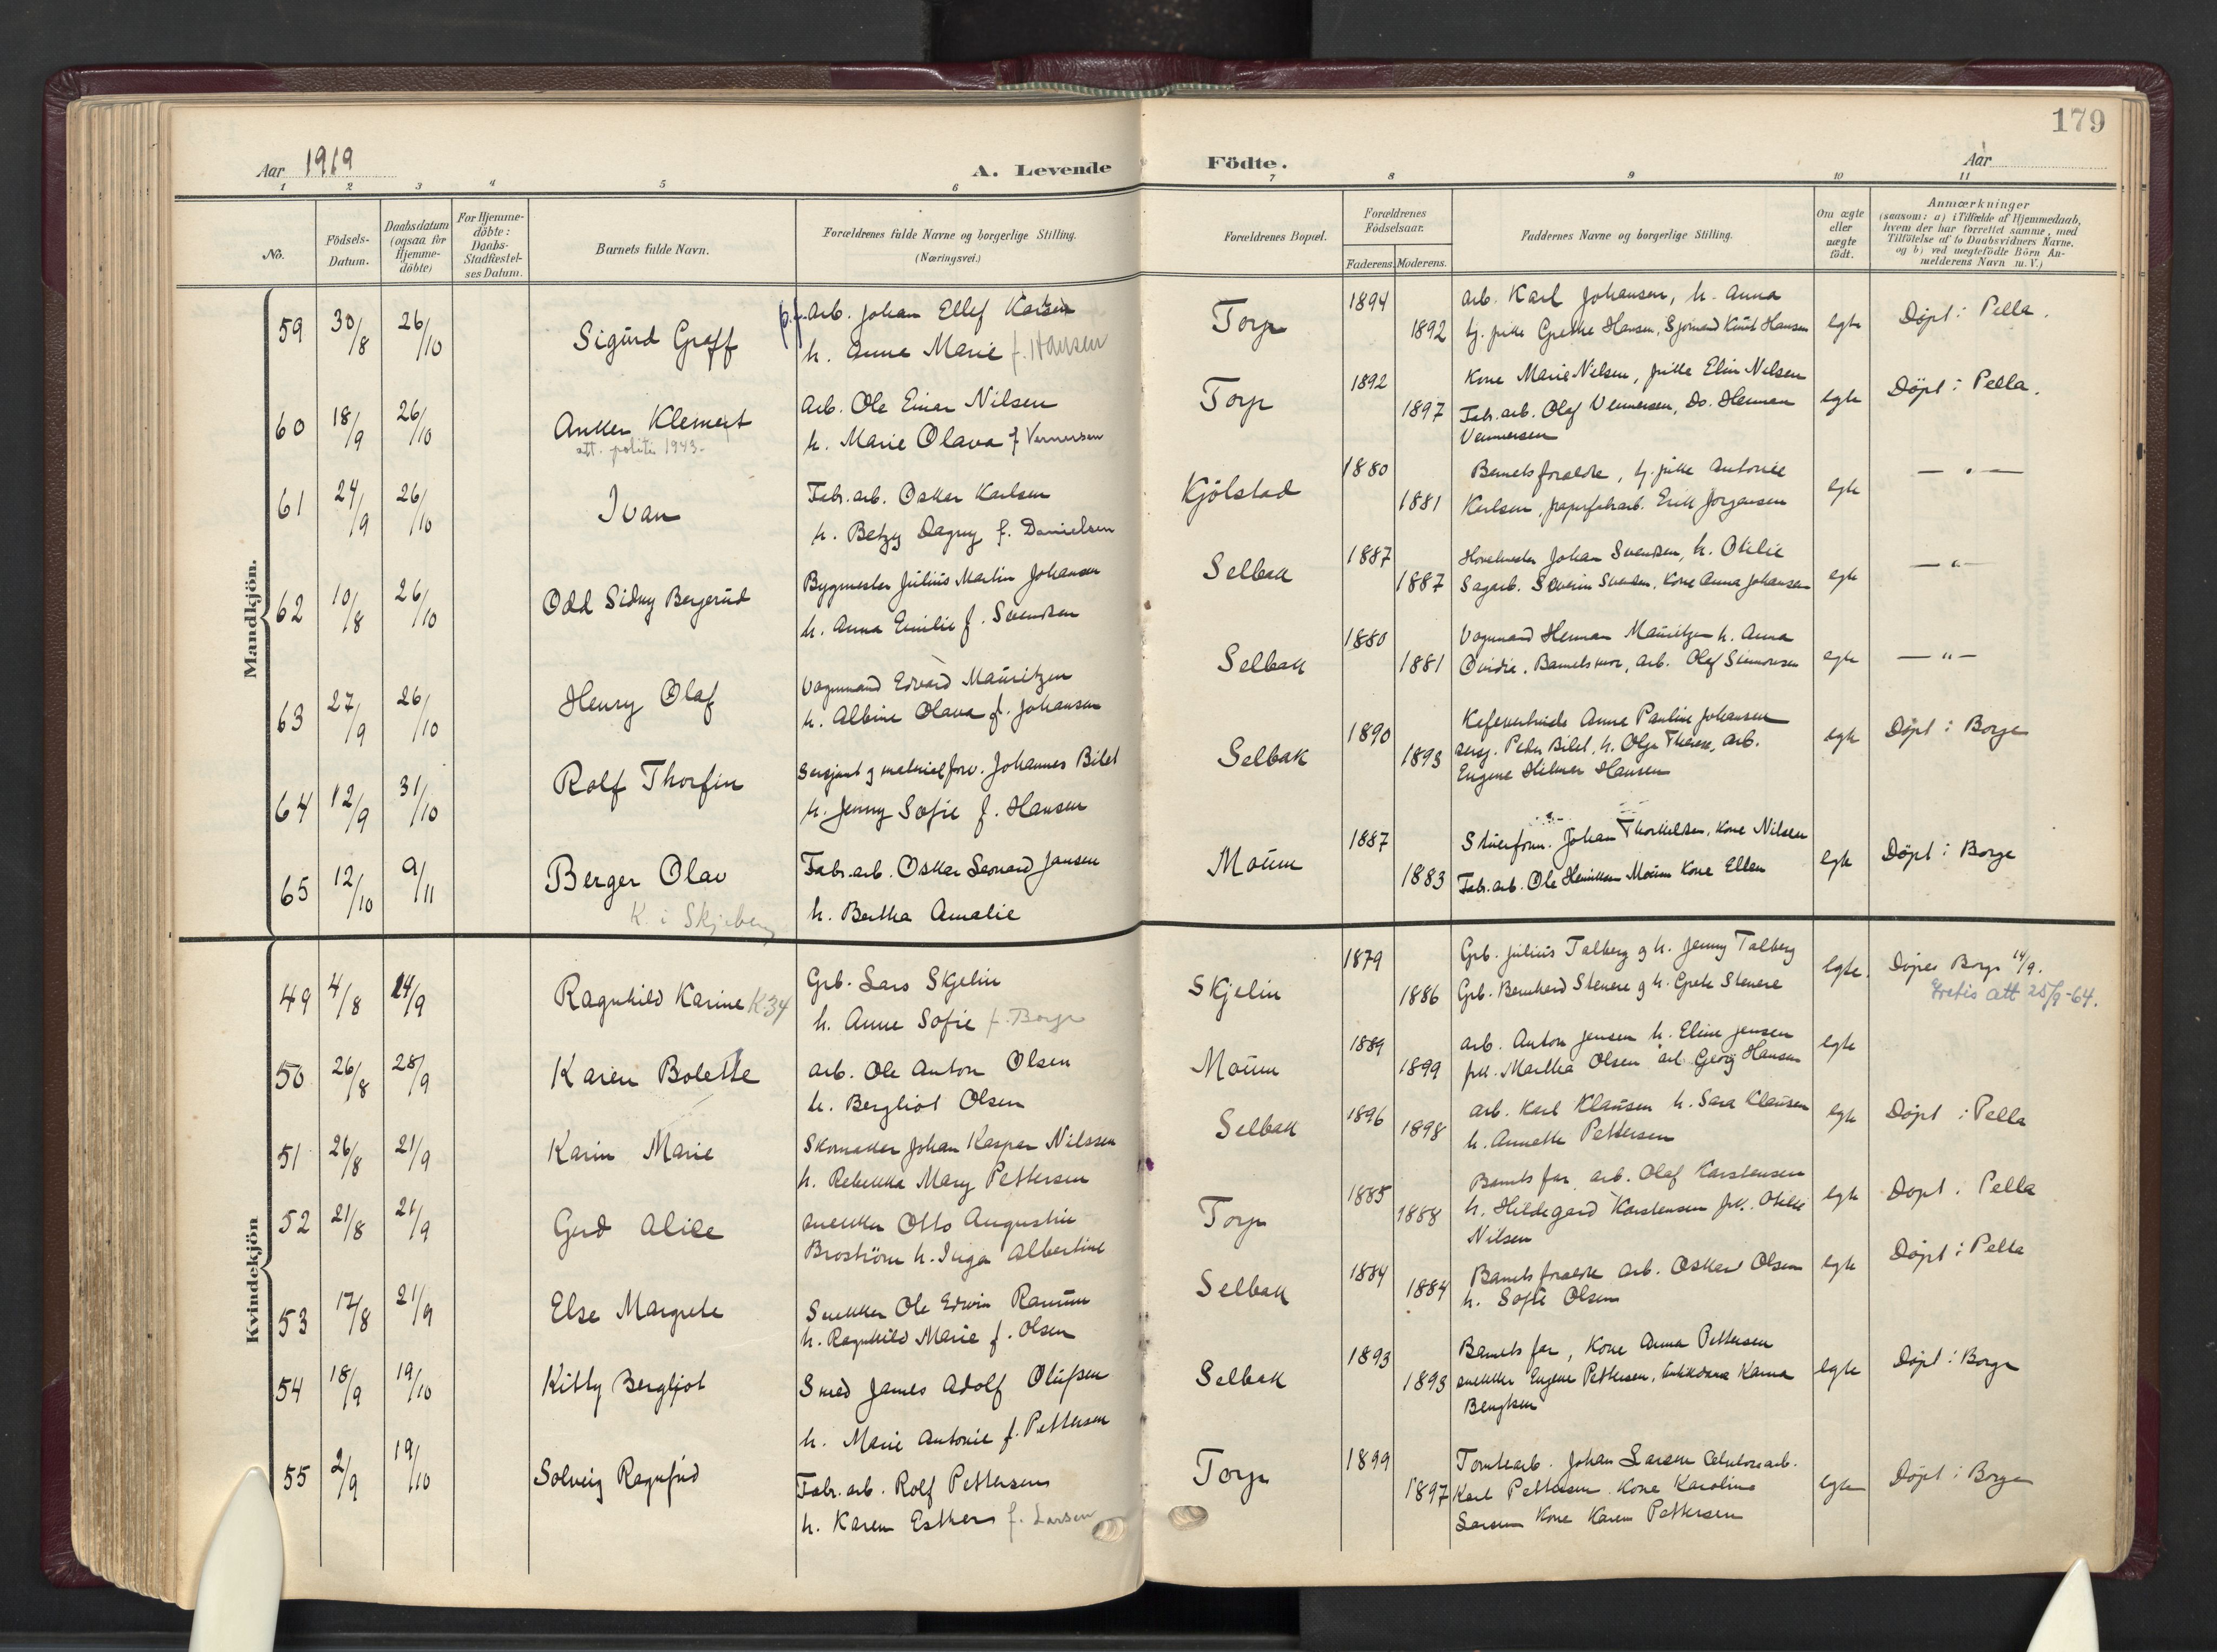 179
Aar 1919
A. Levende Födte.
Aar
1 2 3 4 5 6 7 8 9 10 11
No.
Födsels-Datum.
Daabsdatum (ogsaa for Hjemme-döbte)
For Hjemme-döbte: Daabs-Stadfæstel-ses Datum.
Barnets fulde Navn.
Forældrenes fulde Navne og borgerlige Stilling.
(Næringsvei.)
Forældrenes Bopæl.
Forældrenes Födselsaar.
Faderens. Moderens.
Faddernes Navne og borgerlige Stilling.
Om ægte eller uægte födt.
Anmærkninger
(saasom: a) i Tilfælde af Hjemmedaab,
hvem der har forrettet samme, med
Tilföielse af to Daabsvidners Navne,
og b) ved uægtefödte Börn An-
melderens Navn m.V.)
Mandkjön.
59 30/8 26/10 Sigurd Graff
p.f. Arb. Johan Ellef Karlsen
h. Anna Marie f. Hansen
Torp 1894 1892
Arb. Karl Johansen, h. Anna
tj. pike Grethe Hansen, Sjömand Knut Hansen
egte Döpt i Pella.
60 18/9 26/10 Anker Klement
att. politi 1943.
Arb. Ole Einar Nilsen
h. Marie Olava f Vernersen
Torp 1892 1897
Kone Marie Nilsen, pike Elin Nilsen
Fabr. arb. Olaf Vernersen, Do. Herman
Vernersen
egte Döpt i Pella.
61 24/9 26/10 Ivan
Fabr. arb. Oskar Karlsen
h. Betzy Dagny f. Danielsen
Kjölstad 1880 1881
Barnets foraldre, tj. pike Antonie
Karlsen, papirfabrarb. Erik Jörgensen
egte — " —
62 10/8 26/10 Odd Sidny Bergerud
Bygmester Julius Martin Johansen
h. Anna Emilie f. Svendsen
Selbak 1887 1887
Johan Svendsen, h. Otilie
Sagarb. Severin Svendsen, Kone Anna Johansen
egte — " —
63 27/9 26/10 Henry Olaf
Vognmand Edvard Mauritzen
h. Albine Olava f. Johansen
Selbak 1880 1881
Vognmand Herman Mauritzen h. Anna
Ovidie, Barnets mor, Arb. Olaf Simonsen
egte — " —
64 12/9 31/10 Rolf Thorfin
Sersjant g materielforv. Johannes Bilet
h. Jenny Sofie f. Hansen
Selbak 1890 1893
Kafevertinde Anna Pauline Johansen
Serg. Peder Bilet, h. Olga Therese, Arb.
Eugene Hilmar Hansen
egte Döpt i Borge
65 12/10 9/11 Berger Olav
K. i Skjeberg
Fabr. arb. Oskar Leonard Jansen
h. Bertha Amalie
Moum 1887 1883
Johan Thorkildsen, Kone Nilsen
Fabr. arb. Ole Henriksen Moum Kone Ellen
egte Döpt i Borge
Kvindekjön
49 4/8 14/9 Ragnhild Karine K.34
Grb. Lars Skjelin
h. Anne Sofie f. Borge
Skjelin 1879 1886
Grb. Julius Talberg g h. Jenny Talberg
Grb. Bernhard Stenere g h. Grete Stenere
egte. Döpes Borge 14/9.
Gratis att 25/9-64.
50 26/8 28/9 Karen Bolette
Arb. Ole Anton Olsen
h. Bergliot Olsen
Moum 1889 1899
Arb. Anton Jensen h. Eline Jensen
frk. Martha Olsen arb Georg Hansen
egte
51 26/8 21/9 Karin Marie
Skomaker Johan Kaspar Nilssen
h. Rebekka Mary Pettersen
Selbak 1896 1898
Arb. Karl Klausen h. Sara Klausen
h. Annette Pettersen
egte Döpt i Pella
52 21/8 21/9 Gerd Alice
Snekker Otto Augustin
Broström h. Inga Albertine
Torp 1885 1888
Barnets far, arb. Olaf Karstensen
h. Hildegard Karstensen frk. Otilie
Nilsen
egte Döpt i Pella
53 17/8 21/9 Else Margrete
Snekker Ole Edvin Ramum
h. Ragnhild Marie f. Olsen
Selbak 1884 1884
Barnets foraldre arb. Oskar Olsen
h. Sofie Olsen
egte Döpt i Pella
54 18/9 19/10 Kitty Bergljot
Smed James Adolf Olufsen
h. Marie Antonie f. Pettersen
Selbak 1893 1893
Barnets far, Kone Anna Pettersen
snekker Eugene Pettersen, butikdame Karna
Bengtsen
egte Döpt i Borge
55 2/9 19/10 Solveig Ragnfrid
Fabr. arb. Rolf Pettersen
h. Karen Esther f. Larsen
Torp 1899 1897
Tomtearb. Johan Larsen Celulosearb.
Karl Pettersen Kone Karoline
Larsen Kone Karen Pettersen
egte Döpt i Borge